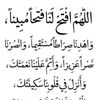 اللَّهُمَّ افْتَحْ لَنَا فَتْحًا مُبِينًا،
وَاهْدِنَا صِرَاطًا مُسْتَقِيمًا، وَانْصُرْنَا
نَصْرًا عَزِيزًا، وَأَتِمَّ عَلَيْنَا نِعْمَتَكَ،
وَأَنْزِلْ فِي قُلُوبِنَا سَكِينَتَكَ